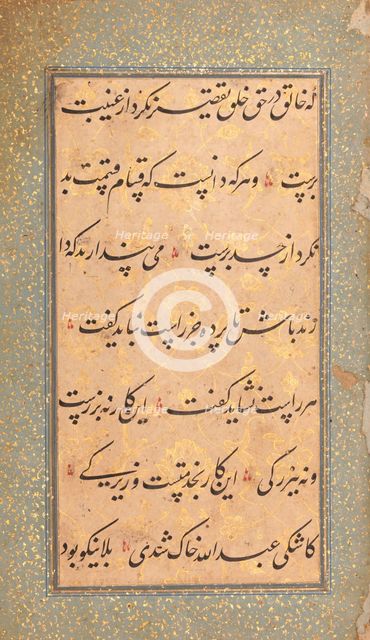 که خالق در حق خلق تقصیر نکرد از غیبت
برست و هر که دانست که قسام قسمت بد
نکرد از حسد برست می پندارند که دا
رند باش تا پرده جز راست نباید گفت
هر راست نشاید گفت این کار نه بزرست
و نه بزرگی این کار بخدمتست و زیرکی
کاشکی عبدالله خاک شدی بلا نیکو بود